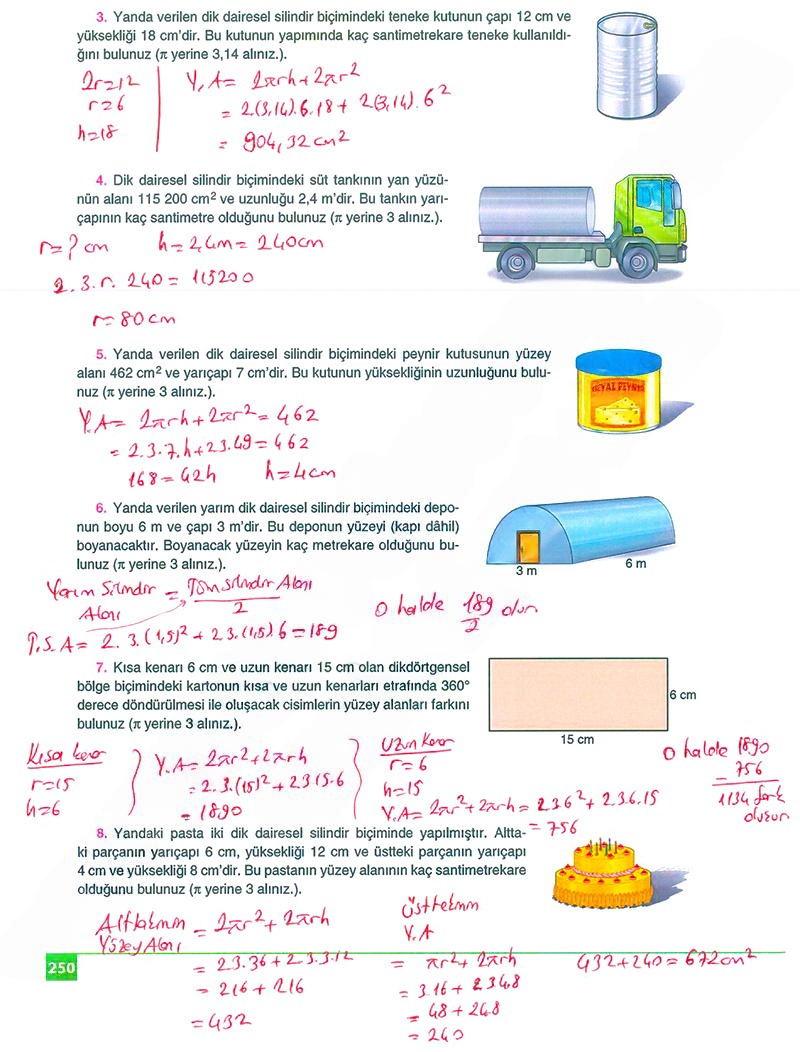 3. Yanda verilen dik dairesel silindir biçimindeki teneke kutunun çapı 12 cm ve
yüksekliği 18 cm'dir. Bu kutunun yapımında kaç santimetrekare teneke kullanıldı-
ğını bulunuz (π yerine 3,14 alınız.).
2r=12
r=6
h=18
Y.A= 2πrh+2πr²
= 2(3,14).6.18+ 2(3,14).6²
= 904,32 cm²
4. Dik dairesel silindir biçimindeki süt tankının yan yüzü-
nün alanı 115 200 cm² ve uzunluğu 2,4 m'dir. Bu tankın yarı-
çapının kaç santimetre olduğunu bulunuz (π yerine 3 alınız.).
r=? cm h=2,4m=240cm
2.3.r.240=115200
r=80cm
5. Yanda verilen dik dairesel silindir biçimindeki peynir kutusunun yüzey
alanı 462 cm² ve yarıçapı 7 cm'dir. Bu kutunun yüksekliğinin uzunluğunu bulu-
nuz (π yerine 3 alınız.).
Y.A= 2πrh+2πr²=462
= 2.3.7.h+2.3.49=462
168=42h h=4cm
6. Yanda verilen yarım dik dairesel silindir biçimindeki depo-
nun boyu 6 m ve çapı 3 m'dir. Bu deponun yüzeyi (kapı dâhil)
boyanacaktır. Boyanacak yüzeyin kaç metrekare olduğunu bu-
lunuz (π yerine 3 alınız.).
3 m
6 m
Yarım Silindir Alanı = Tüm Silindir Alanı / 2
T.S.A= 2.3.(1,5)²+2.3.(1,5)6=189
O halde 189/2 olur
7. Kısa kenarı 6 cm ve uzun kenarı 15 cm olan dikdörtgensel
bölge biçimindeki kartonun kısa ve uzun kenarları etrafında 360°
derece döndürülmesi ile oluşacak cisimlerin yüzey alanları farkını
bulunuz (π yerine 3 alınız.).
6 cm
15 cm
Kısa kenar
r=15
h=6
Y.A=2πr²+2πrh
=2.3.(15)²+2.3.15.6
=1890
Uzun Kenar
r=6
h=15
Y.A=2πr²+2πrh=2.3.6²+2.3.6.15
=756
O halde 1890
- 756
1134 fark
8. Yandaki pasta iki dik dairesel silindir biçiminde yapılmıştır. Altta-
ki parçanın yarıçapı 6 cm, yüksekliği 12 cm ve üstteki parçanın yarıçapı
4 cm ve yüksekliği 8 cm'dir. Bu pastanın yüzey alanının kaç santimetrekare
olduğunu bulunuz (π yerine 3 alınız.).
Alttakinin Yüzey Alanı = 2πr²+2πrh
= 2.3.36+2.3.3.12
= 216+216
=432
Üsttekinin
Y.A
= πr²+2πrh
= 3.16+2.3.4.8
= 48+248
= 240
432+240=672cm²
250